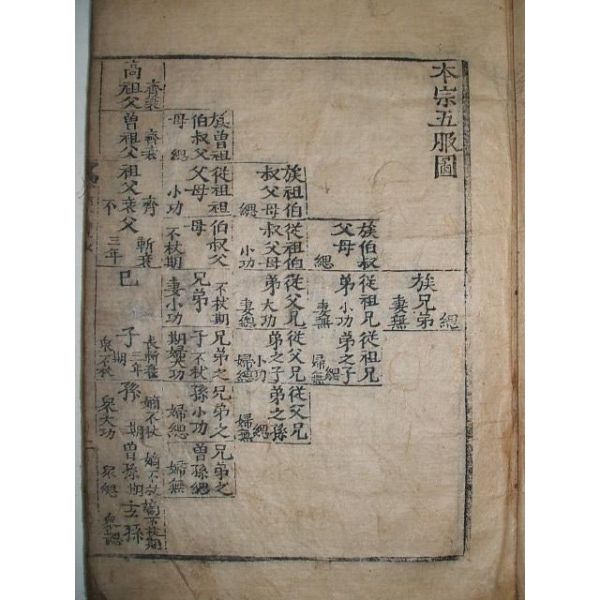 本宗五服圖
族兄弟
緦
妻無
族伯叔
父母
緦
從祖兄
弟
小功
妻無
從祖兄
弟之子
緦
婦無
族祖伯
叔父母
緦
從祖伯
叔父母
小功
從父兄
弟
大功
妻緦
從父兄
弟之子
小功
婦緦
從父兄
弟之孫
緦
婦無
族曾祖
伯叔父
母
緦
從祖祖
父母
小功
伯叔父
母
不杖期
兄弟
不杖期
妻小功
兄弟之
子
不杖
期婦大功
兄弟之
孫
小功
婦緦
兄弟之
曾孫
緦
婦無
高祖父
齊衰
曾祖父
齊衰
祖父
齊
衰不
父
斬衰
三年
己
子
長斬衰
三年
期
衆不杖
孫
嫡不杖
期
衆大功
曾孫
嫡不杖
期
衆緦
玄孫
嫡不杖期
衆緦